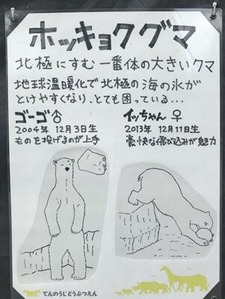 ホッキョクグマ
北極にすむ一番体の大きいクマ
地球温暖化で北極の海の氷が
とけやすくなり、とても困っている…
ゴーゴ♂
2004年 12月3日生
ものを投げるのが上手
イッちゃん ♀
2013年 12月11日生
豪快な飛び込みが魅力
てんのうじどうぶつえん